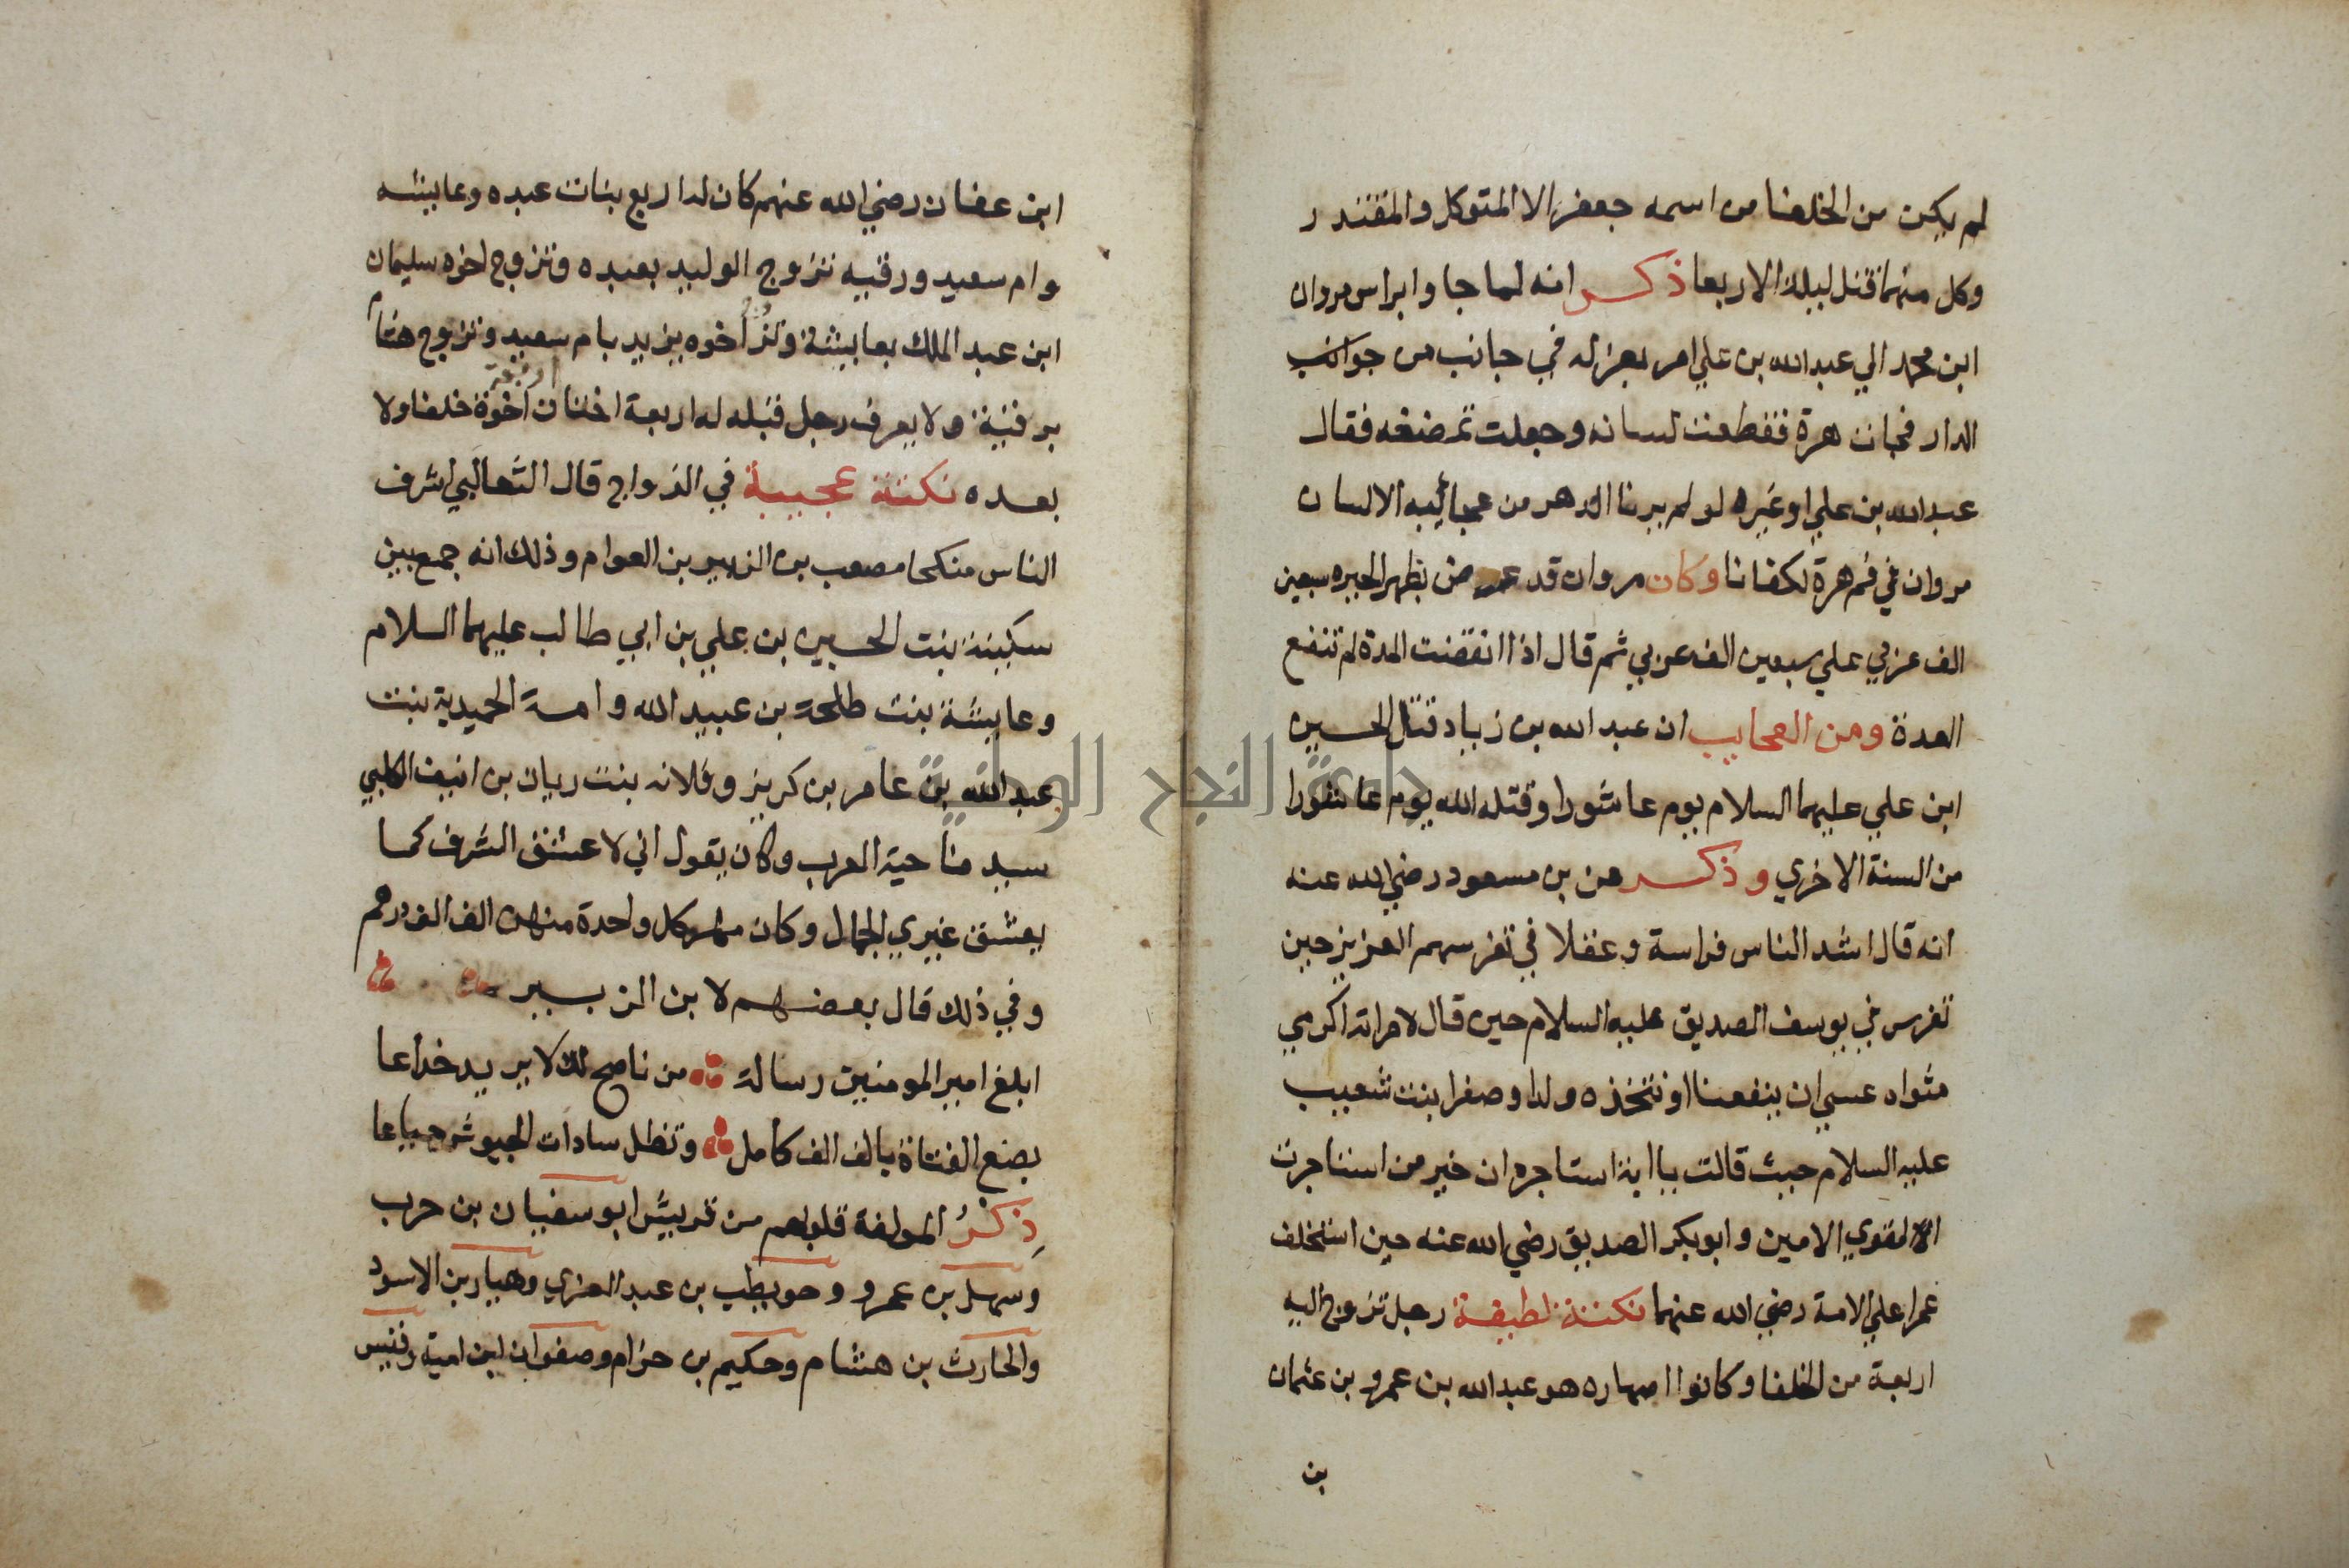 لم يكن من الخلفا من اسمه جعفر الا المتوكل والمقتدر
وكل منهما قتل ليلة الاربعا ذكر انه لما جاوا براس مروان
ابن محمد الي عبد الله بن علي امر بعزله في جانب من جوانب
الدار فجات هرة فقطعت لسانه وجعلت تمضغه فقال
عبد الله بن علي او غيره لو لم يرنا الدهر من عجائبه الا لسان
مروان في فم هرة لكفانا وكان مروان قد عرض بظهر الحيره سبعين
الف عربي علي سبعين الف عربي ثم قال اذا انقضت المدة لم تنفع
العدة ومن العجايب ان عبد الله بن زياد قتل الحسين
ابن علي عليهما السلام يوم عاشورا وقتله الله يوم عاشورا
من السنة الاخري وذكر عن بن مسعود رضي الله عنه
انه قال اشد الناس فراسة وعقلا في تفرسهم العزيز حين
تفرس في يوسف الصديق عليه السلام حين قال لامراته اكرمي
مثواه عسي ان ينفعنا او نتخذه ولدا وصفرا بنت شعيب
عليه السلام حيث قالت يا ابة استاجره ان خير من استاجرت
القوي الامين وابو بكر الصديق رضي الله عنه حين استخلف
عمرا علي الامة رضي الله عنهما نكتة لطيفة رجل تزوج اليه
اربعة من الخلفا وكانوا اصهاره هو عبد الله بن عمرو بن عثمان
بن
ابن عفان رضي الله عنهم كان له اربع بنات عبده وعايشه
وام سعيد ورقيه تزوج الوليد بعبده وتزوج اخوه سليمان
ابن عبد الملك بعايشة وتزوج اخوه يزيد بام سعيد وتزوج هشام
برقية ولا يعرف رجل قبله له اربعة اختان اربعة اخوة خلفا ولا
بعده نكتة عجيبة في الزواج قال الثعالبي اشرف
الناس منكحا مصعب بن الزبير بن العوام وذلك انه جمع بين
سكينة بنت الحسين بن علي بن ابي طالب عليهما السلام
وعايشة بنت طلحة بن عبيد الله وامة الحميدية بنت
عبد الله بن عامر بن كريز وفلانه بنت ريان بن انيف الكلبي
سيد ضاحية العرب وكان يقول اني لاعشق الشرف كما
يعشق غيري الجمال وكان مهر كل واحدة منهن الف الف درهم
وفي ذلك قال بعضهم لابن الزبير
ابلغ امير المومنين رسالة من ناصح لك لا يريد خداعا
بضع الفتاة بالف الف كامل وتظل سادات الجيوش جياعا
ذكر المولفة قلوبهم من قريش ابو سفيان بن حرب
وسهل بن عمرو وحويطب بن عبد العزي وهبار بن الاسود
والحارث بن هشام وحكيم بن حزام وصفوان ابن امية وقيس
جامعة النجاح الوطنية